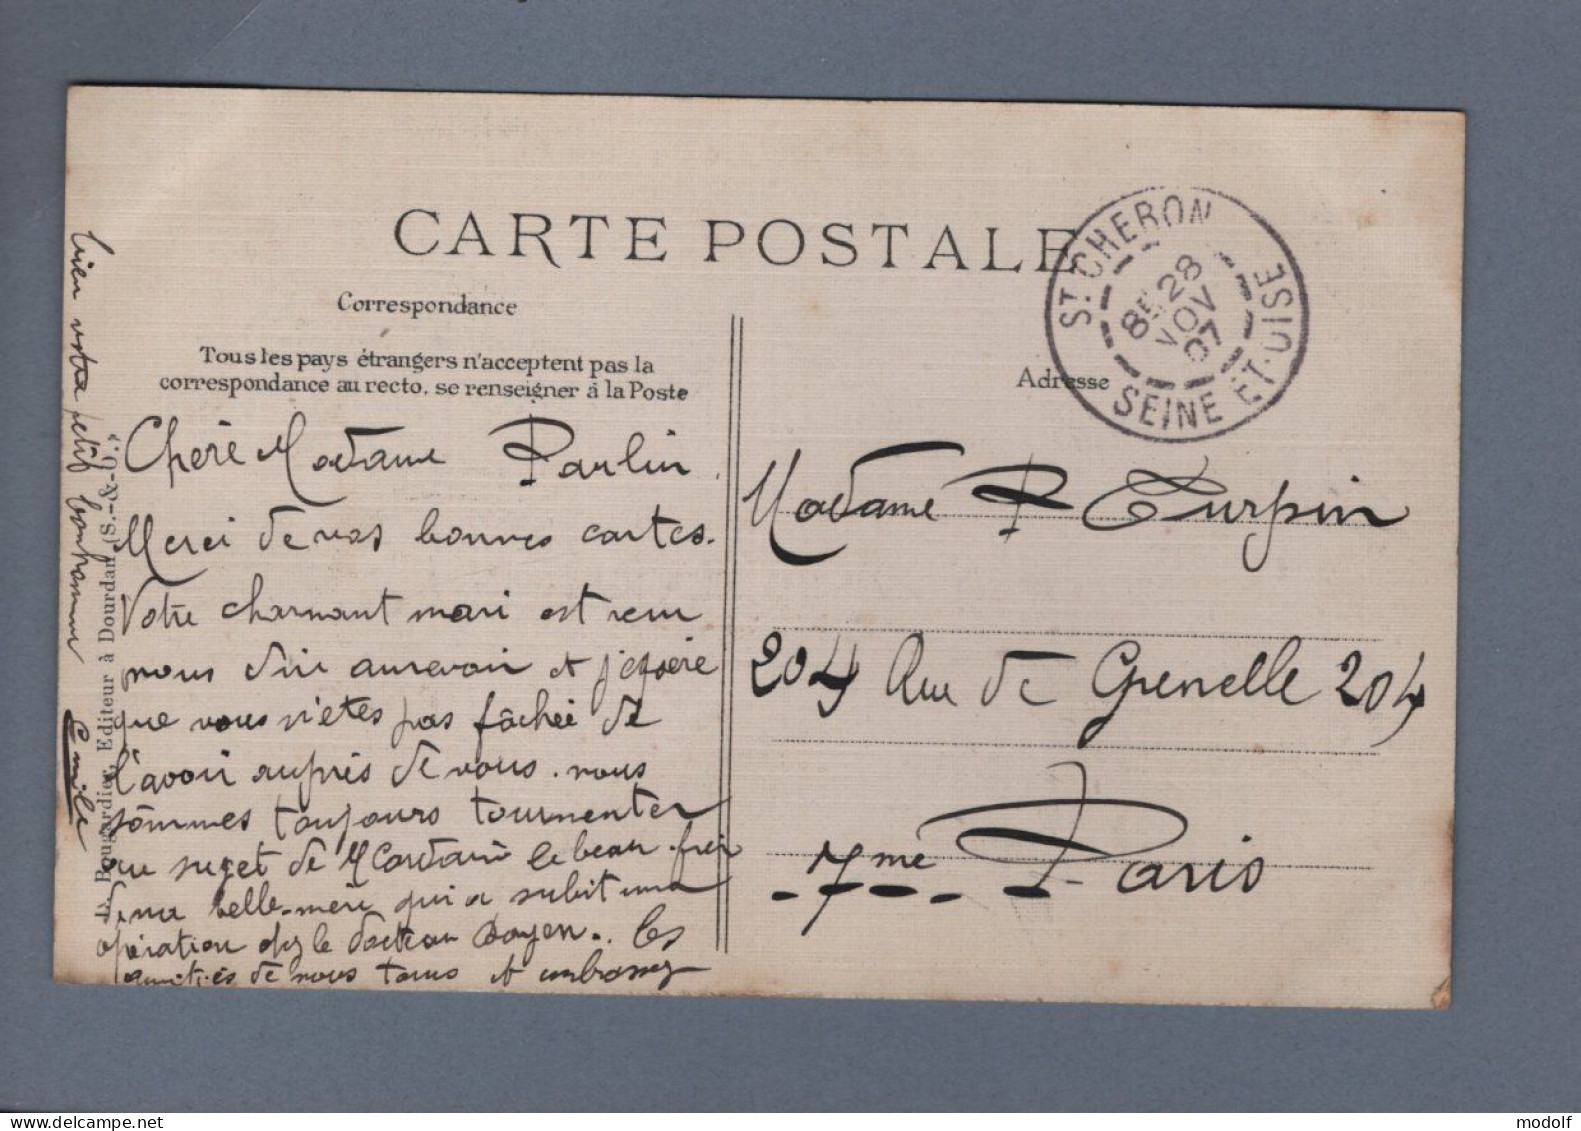 CARTE POSTALE
Correspondance
Tous les pays étrangers n'acceptent pas la
correspondance au recto. se renseigner à la Poste
Chère Madame Parlin
Merci de vos bonnes cartes.
Votre charmant mari est venu
nous dire aurevoir et j'espère
que vous n'êtes pas fâchée de
l'avoir auprès de vous. nous
sommes toujours tourmenter
au sujet de M le beau-frère
de ma belle-mère qui a subit une
opération chez le docteur Doyen.. les
amitiés de nous tous et embrassez
bien votre petit bonhomme
Emile
Editeur à Dourdan (S.-&-O.)
ST. CHERON
8E 28
NOV
07
SEINE ET-OISE
Adresse
Madame P Turpin
204 Rue de Grenelle 204
7me Paris
www.delcampe.net
modolf